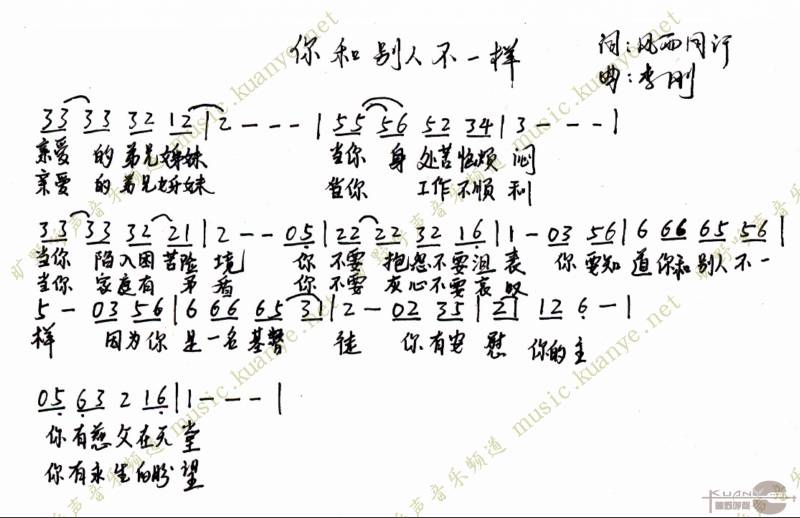 你和别人不一样
词:风雨同行
曲:李刚
33 33 32 12 | 2 - - - | 55 56 52 34 | 3 - - - |
亲爱 的 弟兄姊妹 当你 身 处苦恼烦 闷
亲爱 的 弟兄姊妹 当你 工作不顺 利
33 33 32 21 | 2 - - 05 | 22 22 32 16 | 1 - 03 56 | 6 66 65 56 |
当你 陷入困 苦险 境 你 不要 抱怨不要沮 丧 你 要知 道 你和 别人不一
当你 家庭有 矛盾 你 不要 灰心不要哀叹
5 - 03 56 | 6 66 65 31 | 2 - 02 35 | 21 12 6 - |
样 因为你 是一名基督 徒 你有安 慰 你的主
05 63 2 16 | 1 - - - |
你有慈父在天堂
你有永生的盼望
旷野呼声音乐频道 music.kuanye.net